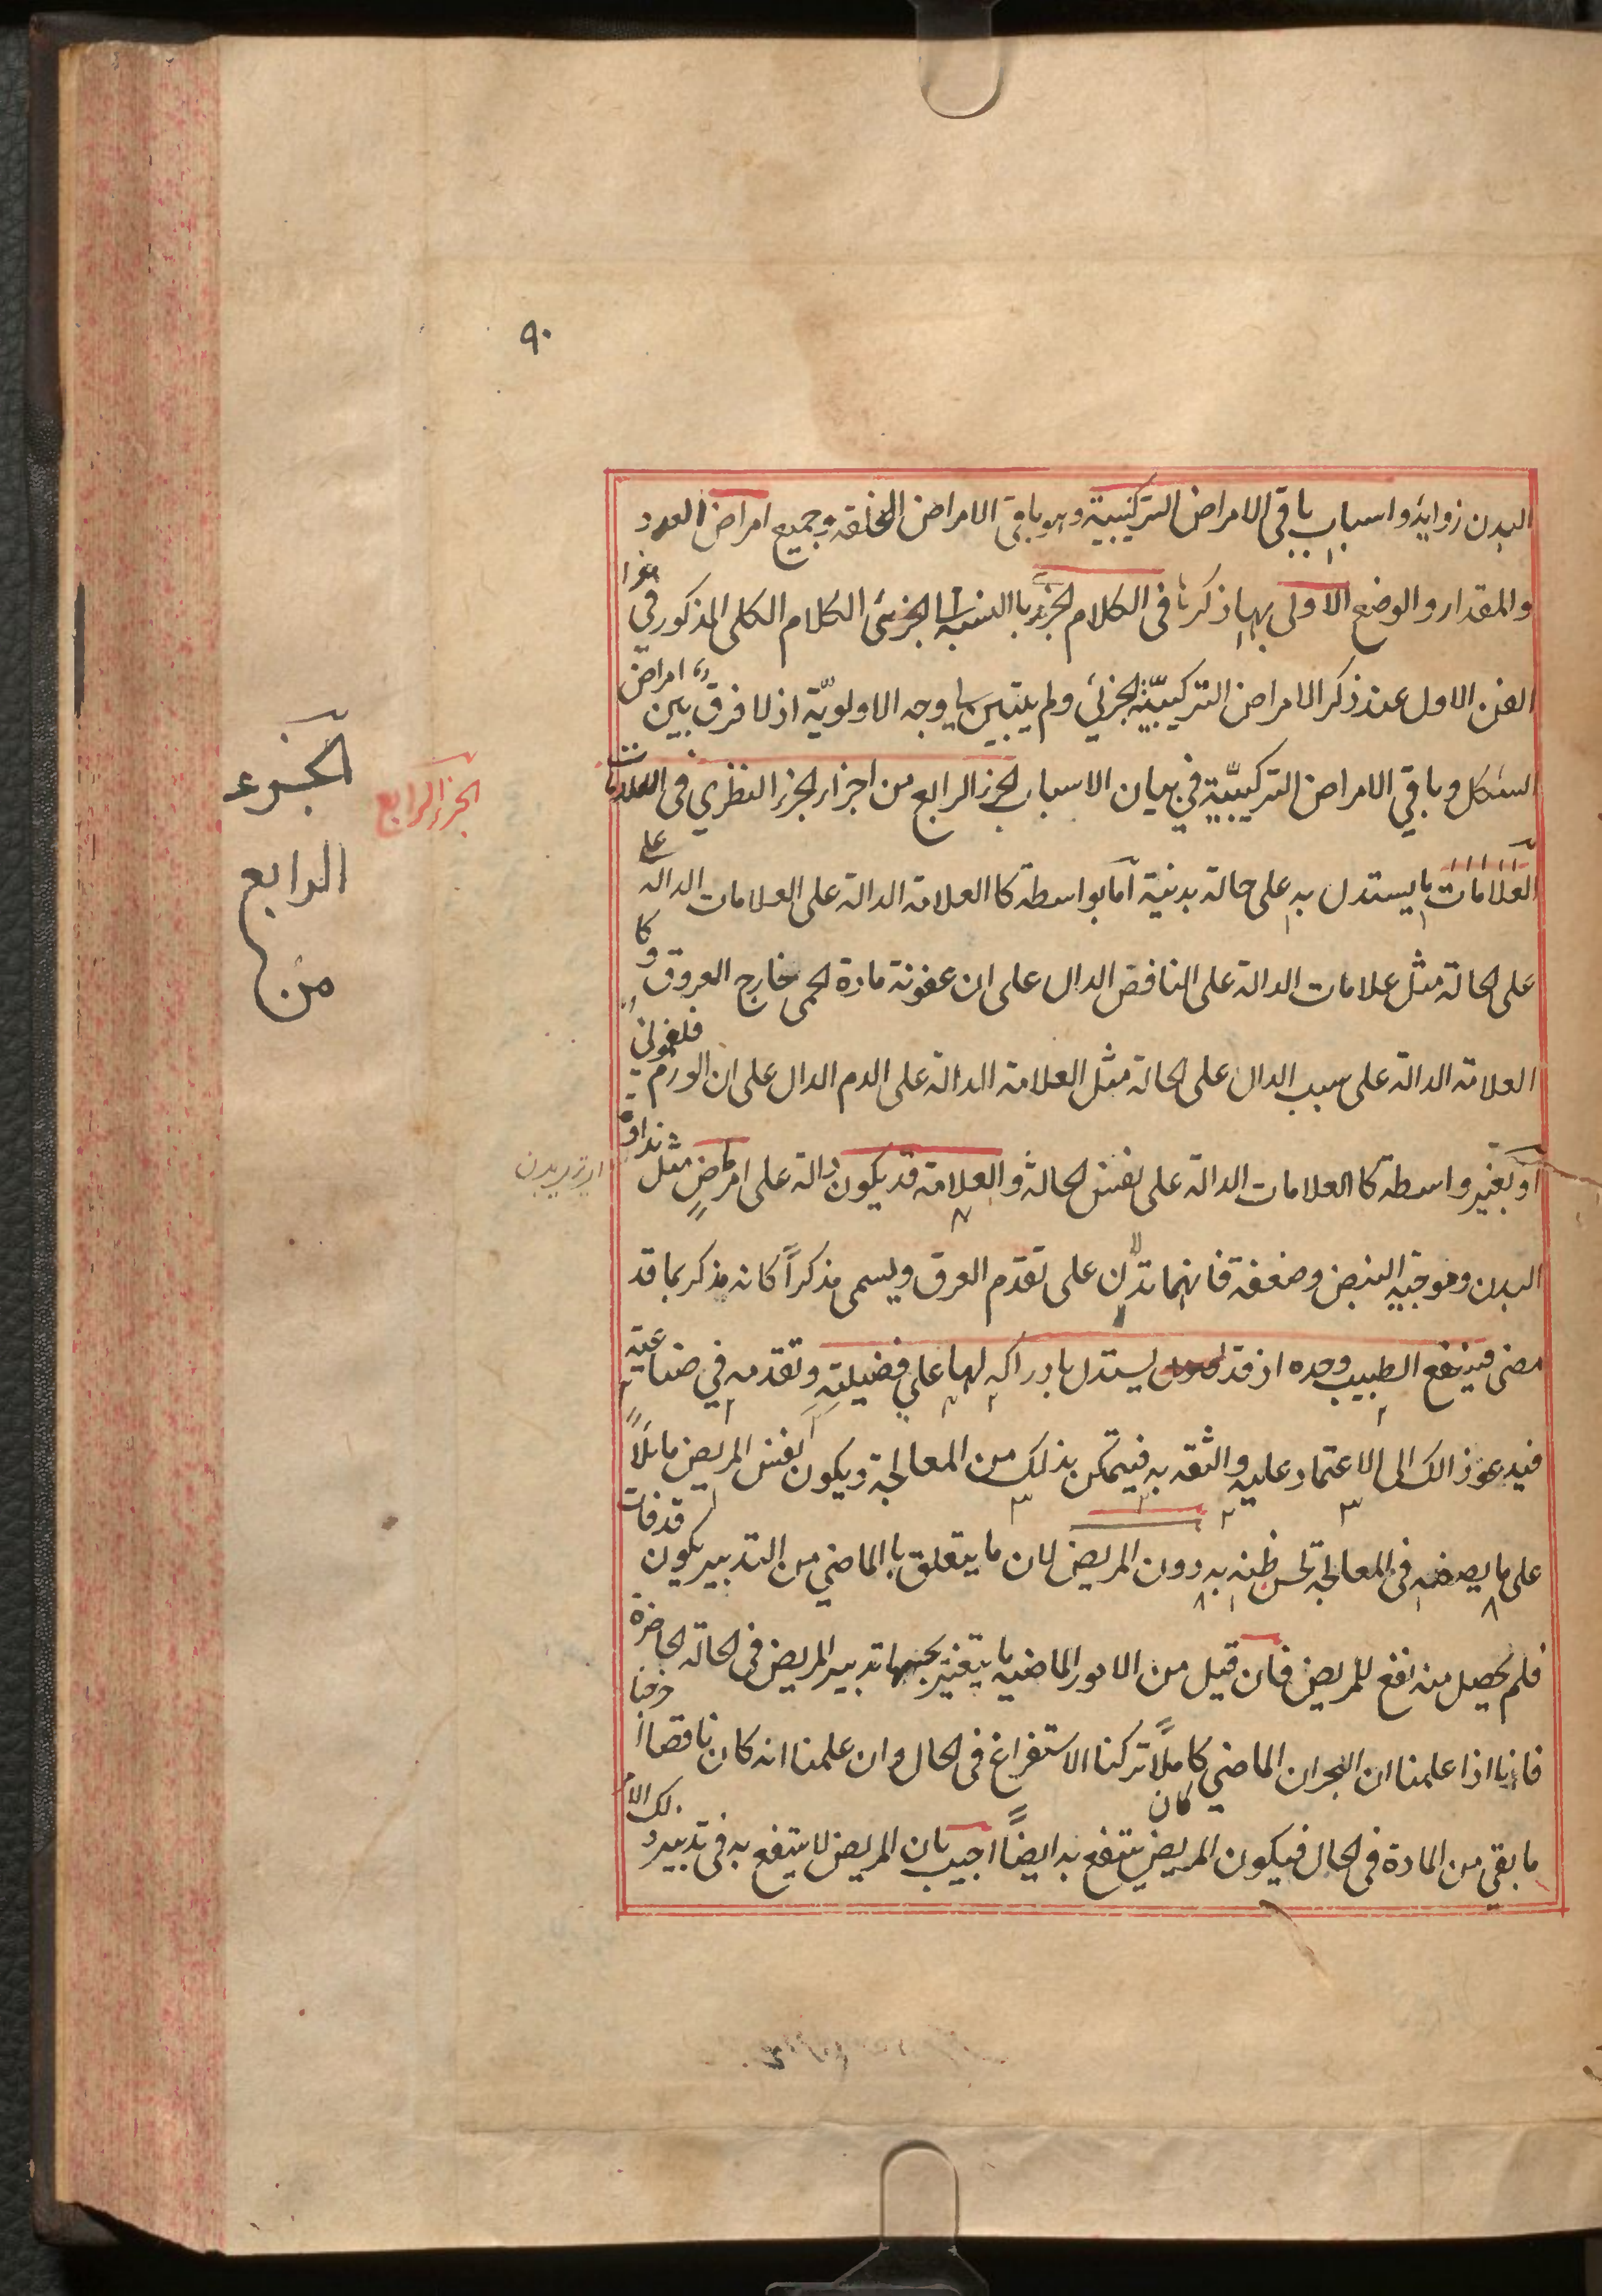 ٩٠
البدن زوايد واسباب باقى الامراض التركيبية وهو باقى الامراض الخلقه وجميع امراض العدد
والمقدار والوضع الاولى بها ذكرنا فى الكلام الجزئ باالنسبة الجزئى الكلام الكلى المذكور في هذا
الفن الاول عند ذكر الامراض التركيبيّة الجزئي ولم يتبين لنا وجه الاولويّة اذ لا فرق بين امراض
الشكل وباقي الامراض التركيبيّة في بيان الاسباب الجزء الرابع من اجزاء الجزء النظري فى العلامات
العلامات ما يستدل به على حالة بدنية اما بواسطة كا العلامة الدالة على العلامات الدالة على
على الحالة مثل علامات الدالة على النافض الدال على ان عفونة مادة الحمى خارج العروق وكا
العلامة الدالة على سبب الدال على الحالة مثل العلامة الدالة على الدم الدال على ان الورم فلغمونى
او بغير واسطة كا العلامات الدالة على نفس الحالة والعلامة قد يكون دالة على امر ماض مثل نداوة
البدن وموجية النبض وضعفه فانهما تدلان على تقدم العرق ويسمى مذكراً كانه مذكر بما قد
مضى فينفع الطبيب وحده اذ قد يستدل بادراكه لها على فضيلته وتقدمه في صناعته
فيدعو ذالك الى الاعتماد عليه والثقه به فيتمكن بذلك من المعالجة ويكون نفس المريض مايلاً
على ما يصفه فى المعالجة لحسن ظنه به دون المريض لان ما يتعلق باالماضي من التدبير يكون قد فات
فلم يحصل منه نفع للمريض فان قيل من الامور الماضيه ما يتغير بحسبها تدبير المريض فى الحالة الحاضرة
فانا اذا علمنا ان البحران الماضي كاملاً تركنا الاستفراغ فى الحال وان علمنا انه كان ناقصاا خرجنا
كان
ما بقي من المادة فى الحال فيكون المريض ينتفع به ايضاً اجيب بان المريض لا ينتفع به فى تدبير ذلك الام
الجزء الرابع
الجزء
الرابع
من